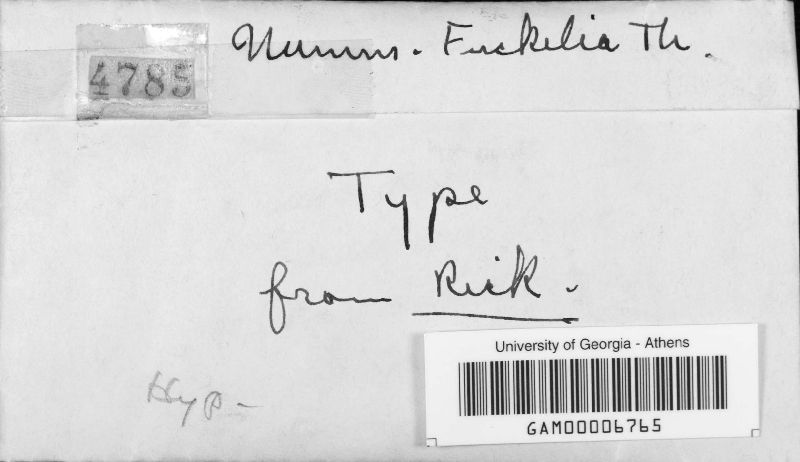 Numm. Fuckelia Th.
4785
Type
from Rick.
University of Georgia - Athens
GAM00006765
Hyp-